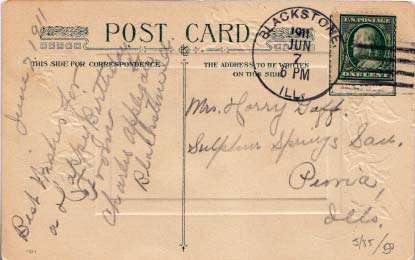 POST CARD
THIS SIDE FOR CORRESPONDENCE.
THE ADDRESS TO BE WRITTEN
ON THIS SIDE.
BLACKSTONE
1911
JUN
7
6 PM
ILL.
U.S. POSTAGE
ONE CENT
June 7 11
Best Wishes for
a Happy Birthday
from
Charles Applegate
Blackstone
Mrs. Harry Goff.
Sulphur Springs San.
Peoria,
Ills.